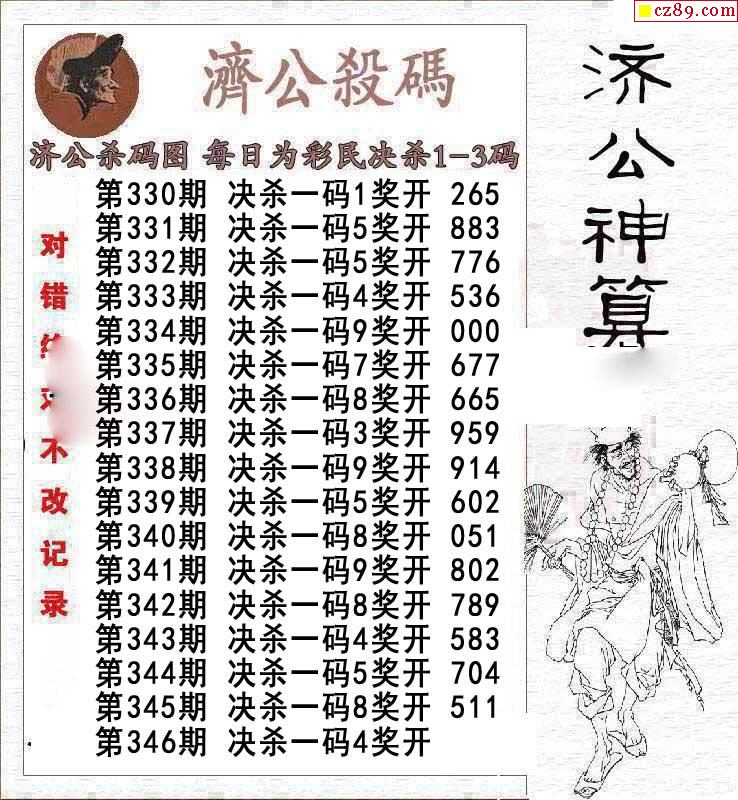 cz89.com
濟公殺碼
济公杀码图 每日为彩民决杀1-3码
第330期 决杀一码1奖开 265
第331期 决杀一码5奖开 883
第332期 决杀一码5奖开 776
第333期 决杀一码4奖开 536
第334期 决杀一码9奖开 000
第335期 决杀一码7奖开 677
第336期 决杀一码8奖开 665
第337期 决杀一码3奖开 959
第338期 决杀一码9奖开 914
第339期 决杀一码5奖开 602
第340期 决杀一码8奖开 051
第341期 决杀一码9奖开 802
第342期 决杀一码8奖开 789
第343期 决杀一码4奖开 583
第344期 决杀一码5奖开 704
第345期 决杀一码8奖开 511
第346期 决杀一码4奖开
对错
不改记录
济公神算